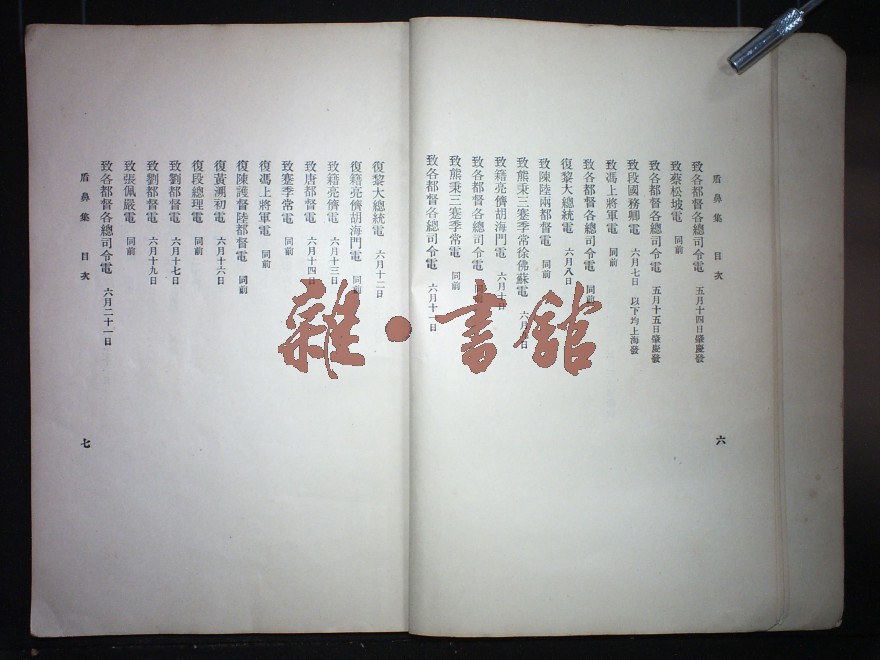 盾鼻集 目次 六
致各都督各總司令電 五月十四日肇慶發
致蔡松坡電 同前
致各都督各總司令電 五月十五日肇慶發
致段國務卿電 六月七日 以下均上海發
致馮上將軍電 同前
致各都督各總司令電 同前
復黎大總統電 六月八日
致陳陸兩都督電 同前
致熊秉三蹇季常徐佛蘇電 六月 日
致籍亮儕胡海門電 六月十日
致各都督各總司令電
致熊秉三蹇季常電 同前
致各都督各總司令電 六月十一日
復黎大總統電 六月十二日
復籍亮儕胡海門電 同前
致籍亮儕電 六月十三日
致唐都督電 六月十四日
致蹇季常電 同前
復馮上將軍電 同前
復陳護督陸都督電 同前
復黃溯初電 六月十六日
復段總理電 同前
致劉都督電 六月十七日
致劉都督電 六月十九日
致張佩嚴電 同前
致各都督各總司令電 六月二十一日
盾鼻集 目次 七
雜·書館